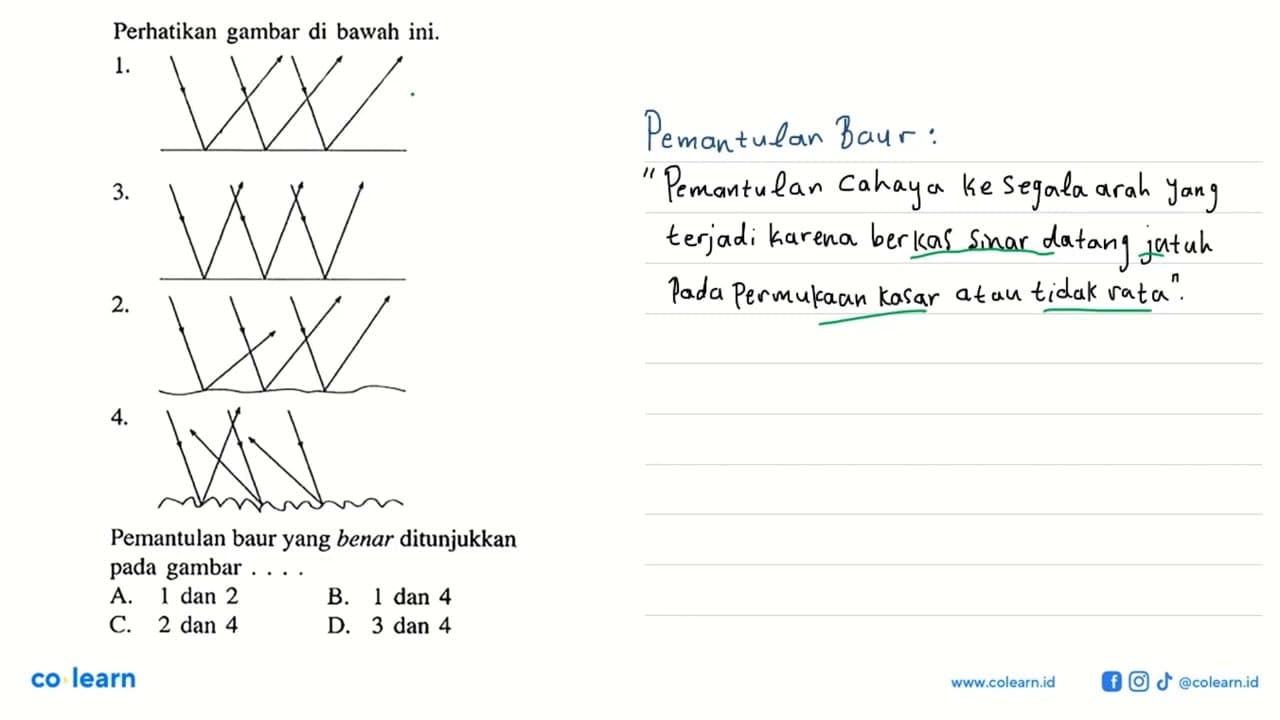 Perhatikan gambar di bawah ini.
1.
3.
2.
4.
Pemantulan baur yang benar ditunjukkan
pada gambar . . . .
A. 1 dan 2 B. 1 dan 4
C. 2 dan 4 D. 3 dan 4
Pemantulan Baur :
"Pemantulan Cahaya ke segala arah yang
terjadi karena berkas sinar datang jatuh
Pada Permukaan kasar atau tidak rata".
co learn
www.colearn.id @colearn.id